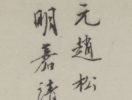 元趙松
明嘉靖